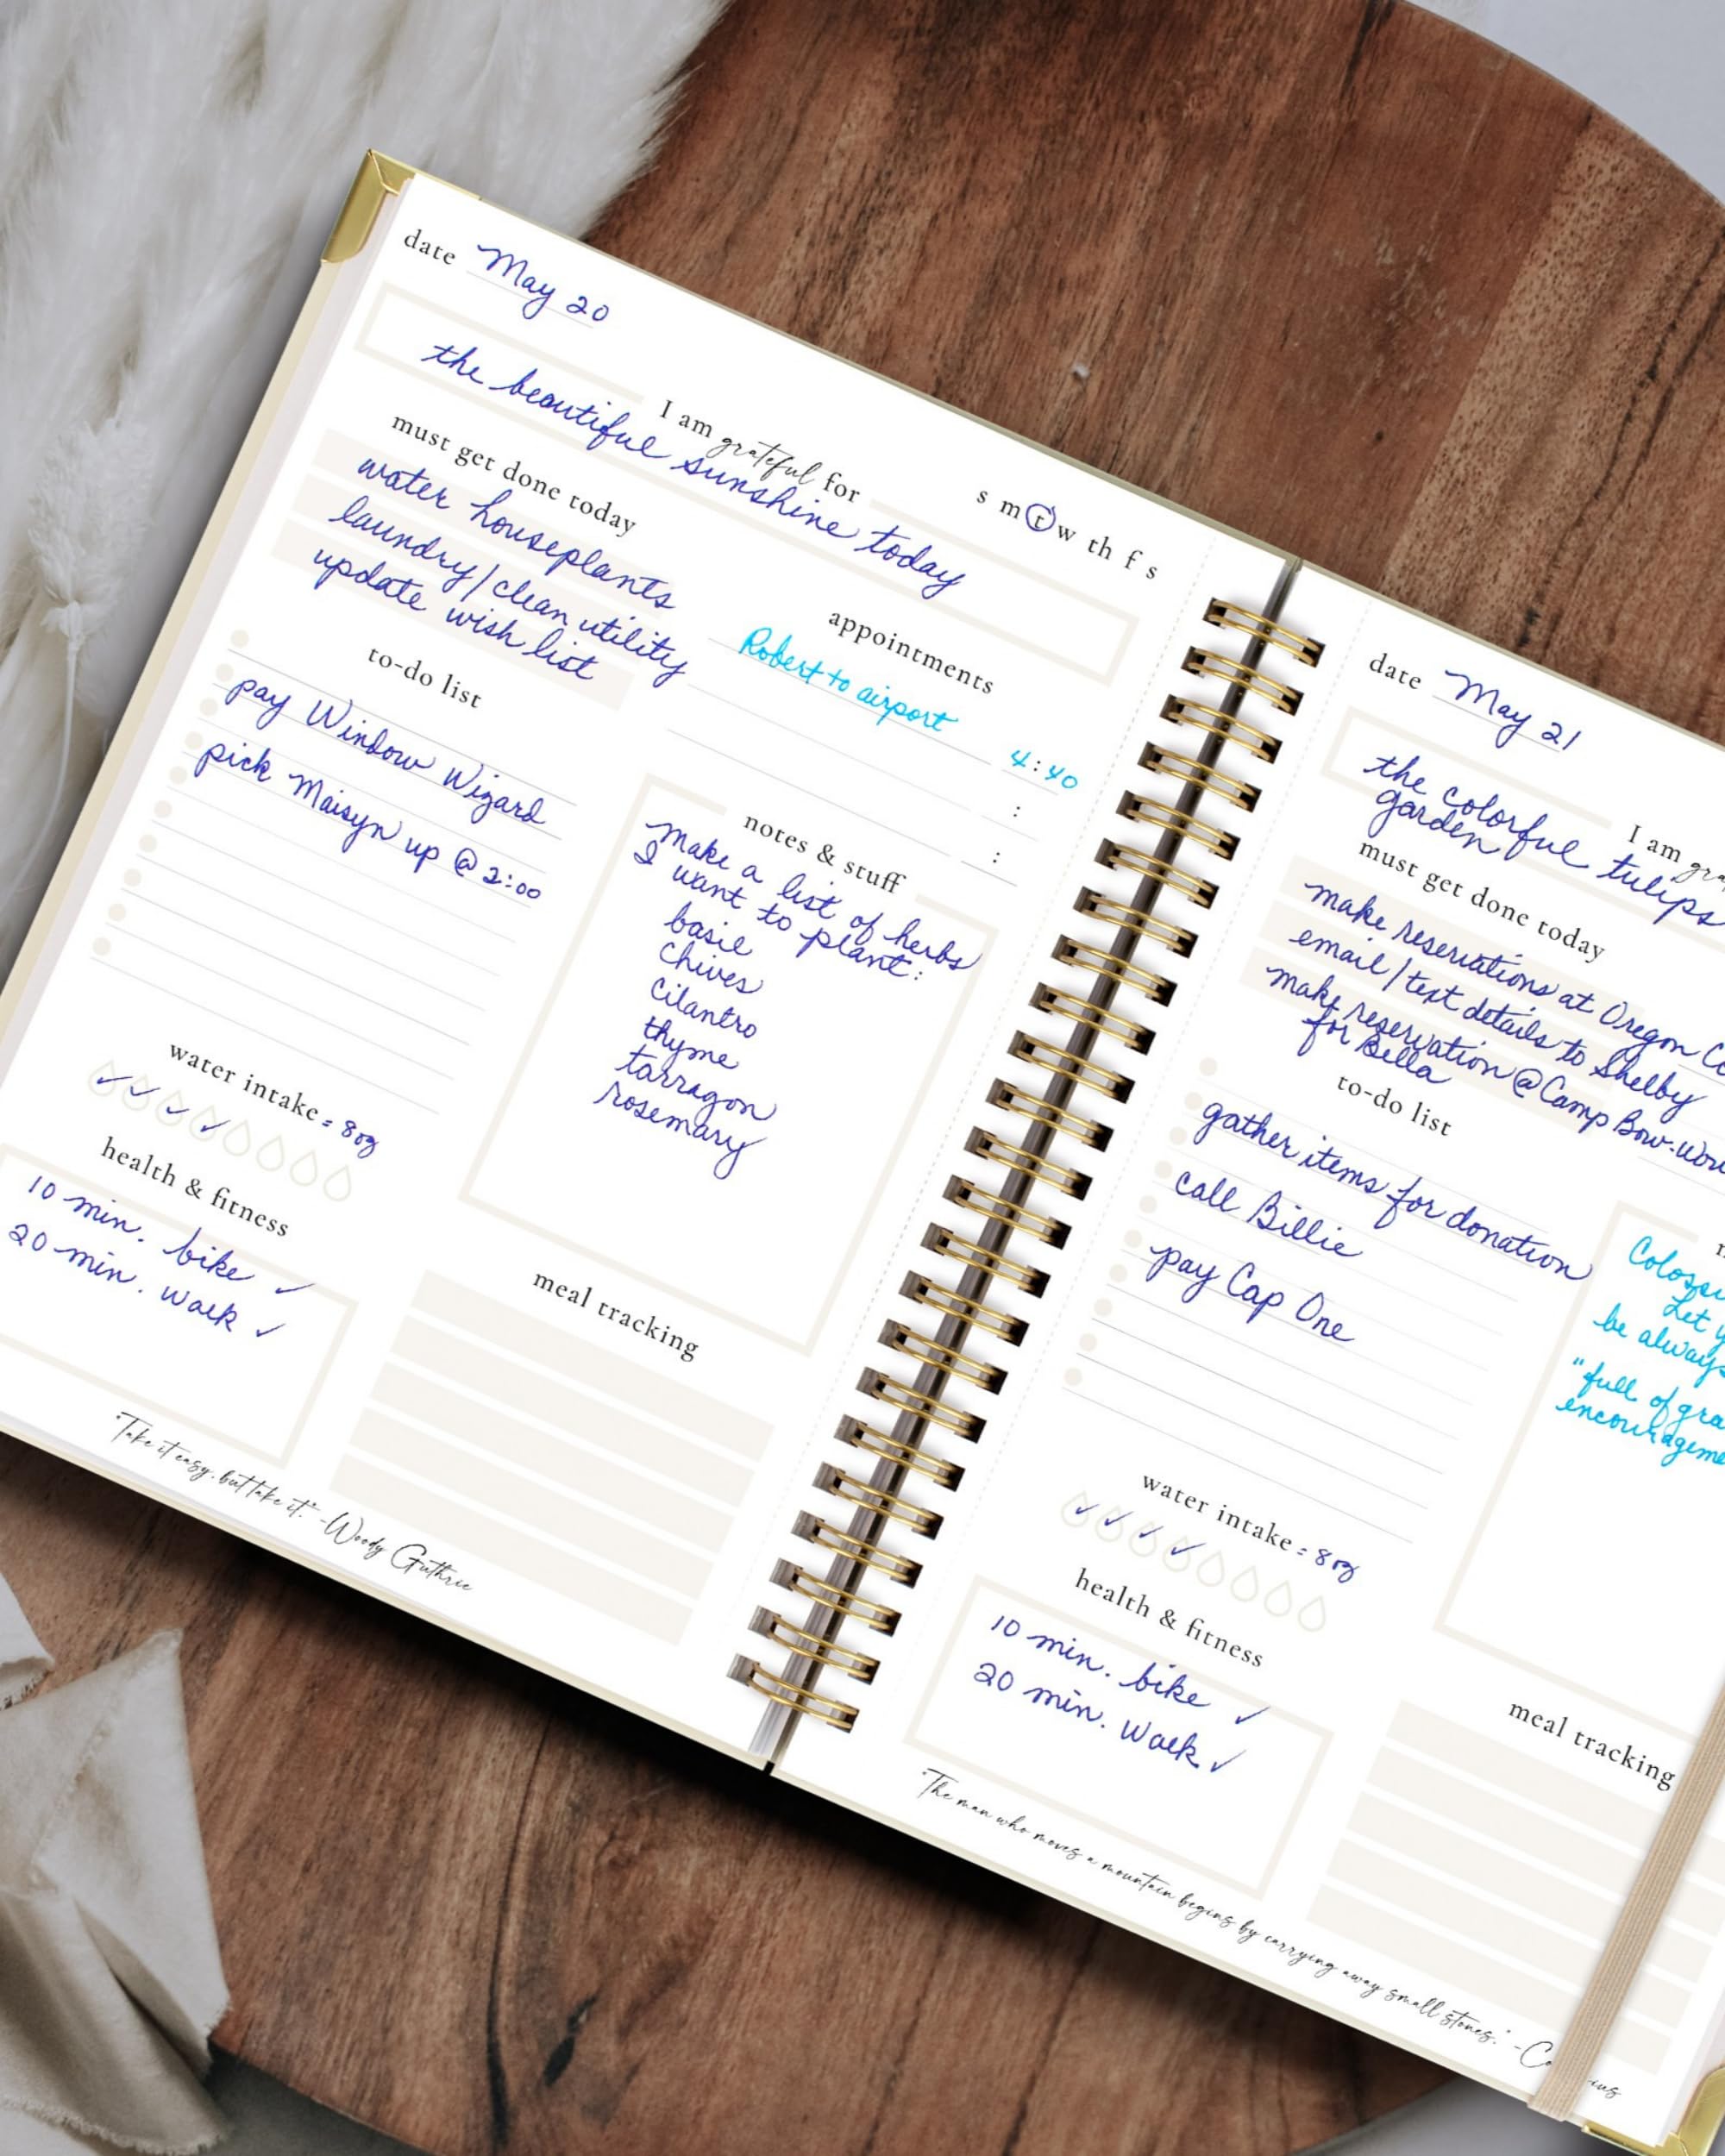 date May 20
s m t w th f s
I am grateful for
the beautiful sunshine today
must get done today
water houseplants
laundry/clean utility
update wish list
appointments
Robert to airport 4:40
:
:
to-do list
pay Window Wizard
pick Maisyn up @ 2:00
notes & stuff
Make a list of herbs
I want to plant:
basil
chives
cilantro
thyme
tarragon
rosemary
water intake = 8oz
health & fitness
10 min. bike ✓
20 min. walk ✓
meal tracking
"Take it easy, but take it." -Woody Guthrie
date May 21
I am
the colorful tulips
garden
must get done today
make reservations at Oregon
email/text details to Shelby
make reservation @ Camp
for Bella
to-do list
gather items for donation
call Billie
pay Cap One
Let
be always
"full of
water intake = 8oz
health & fitness
10 min. bike ✓
20 min. walk ✓
meal tracking
"The man who moves a mountain begins by carrying away small stones." -